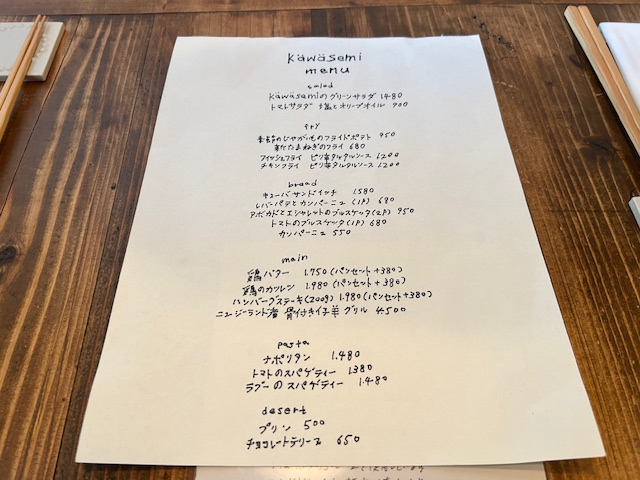 Kawasemi
menu
salad
Kawasemiのグリーンサラダ 1480
トマトサラダ 塩とオリーブオイル 900
fry
季節のじゃがいものフライドポテト 950
新たまねぎのフライ 680
フィッシュフライ ピリ辛タルタルソース 1200
チキンフライ ピリ辛タルタルソース 1200
bread
キューバサンドイッチ 1580
レバーパテとカンパーニュ(1P) 680
アボカドとエシャレットのブルスケッタ(2P) 950
トマトのブルスケッタ(1P) 680
カンパーニュ 550
main
鶏バター 1.750(パンセット+380)
鶏のカツレツ 1.980(パンセット+380)
ハンバーグステーキ(200g) 1.980(パンセット+380)
ニュージーランド産 骨付き仔羊グリル 4.500
pasta
ナポリタン 1.480
トマトのスパゲティー 1.380
ラグーのスパゲティー 1.480
desert
プリン 500
チョコレートテリーヌ 650